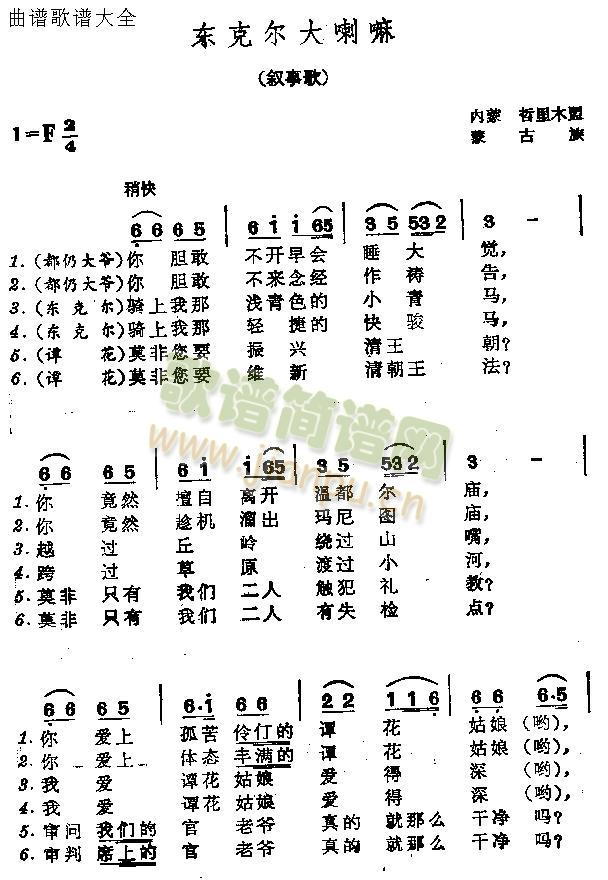 曲谱歌谱大全
东克尔大喇嘛
(叙事歌)
内蒙 哲里木盟
1=F 2/4
蒙古族
稍快
6 6 6 5 | 6 i i 65 | 3 5 53 2 | 3 - |
1.(都仍大爷)你 胆敢 不开早会 睡大 觉,
2.(都仍大爷)你 胆敢 不来念经 作祷 告,
3.(东克尔)骑上我那 浅青色的 小青 马,
4.(东克尔)骑上我那 轻捷的 快骏 马,
5.(谭花)莫非您要 振兴 清王 朝?
6.(谭花)莫非您要 维新 清朝王 法?
6 6 6 5 | 6 i i 65 | 3 5 53 2 | 3 - |
1.你 竟然 擅自 离开 温都尔 庙,
2.你 竟然 趁机 溜出 玛尼图 庙,
3.越过 丘岭 绕过山 嘴,
4.跨过 草原 渡过小 河,
5.莫非 只有 我们 二人 触犯礼 教?
6.莫非 只有 我们 二人 有失检 点?
6 6 6 5 | 6·i 6 6 | 2 2 1 1 6 | 6 6 6·5 |
1.你 爱上 孤苦 伶仃的 谭花 姑娘(哟),
2.你 爱上 体态 丰满的 谭花 姑娘(哟),
3.我 爱 谭花 姑娘 爱得 深(哟),
4.我 爱 谭花 姑娘 爱得 深(哟),
5.审问 我们的 官老爷 真的 就那么 干净吗?
6.审判 席上的 官老爷 真的 就那么 干净吗?
歌谱简谱网
www.jianpu.cn